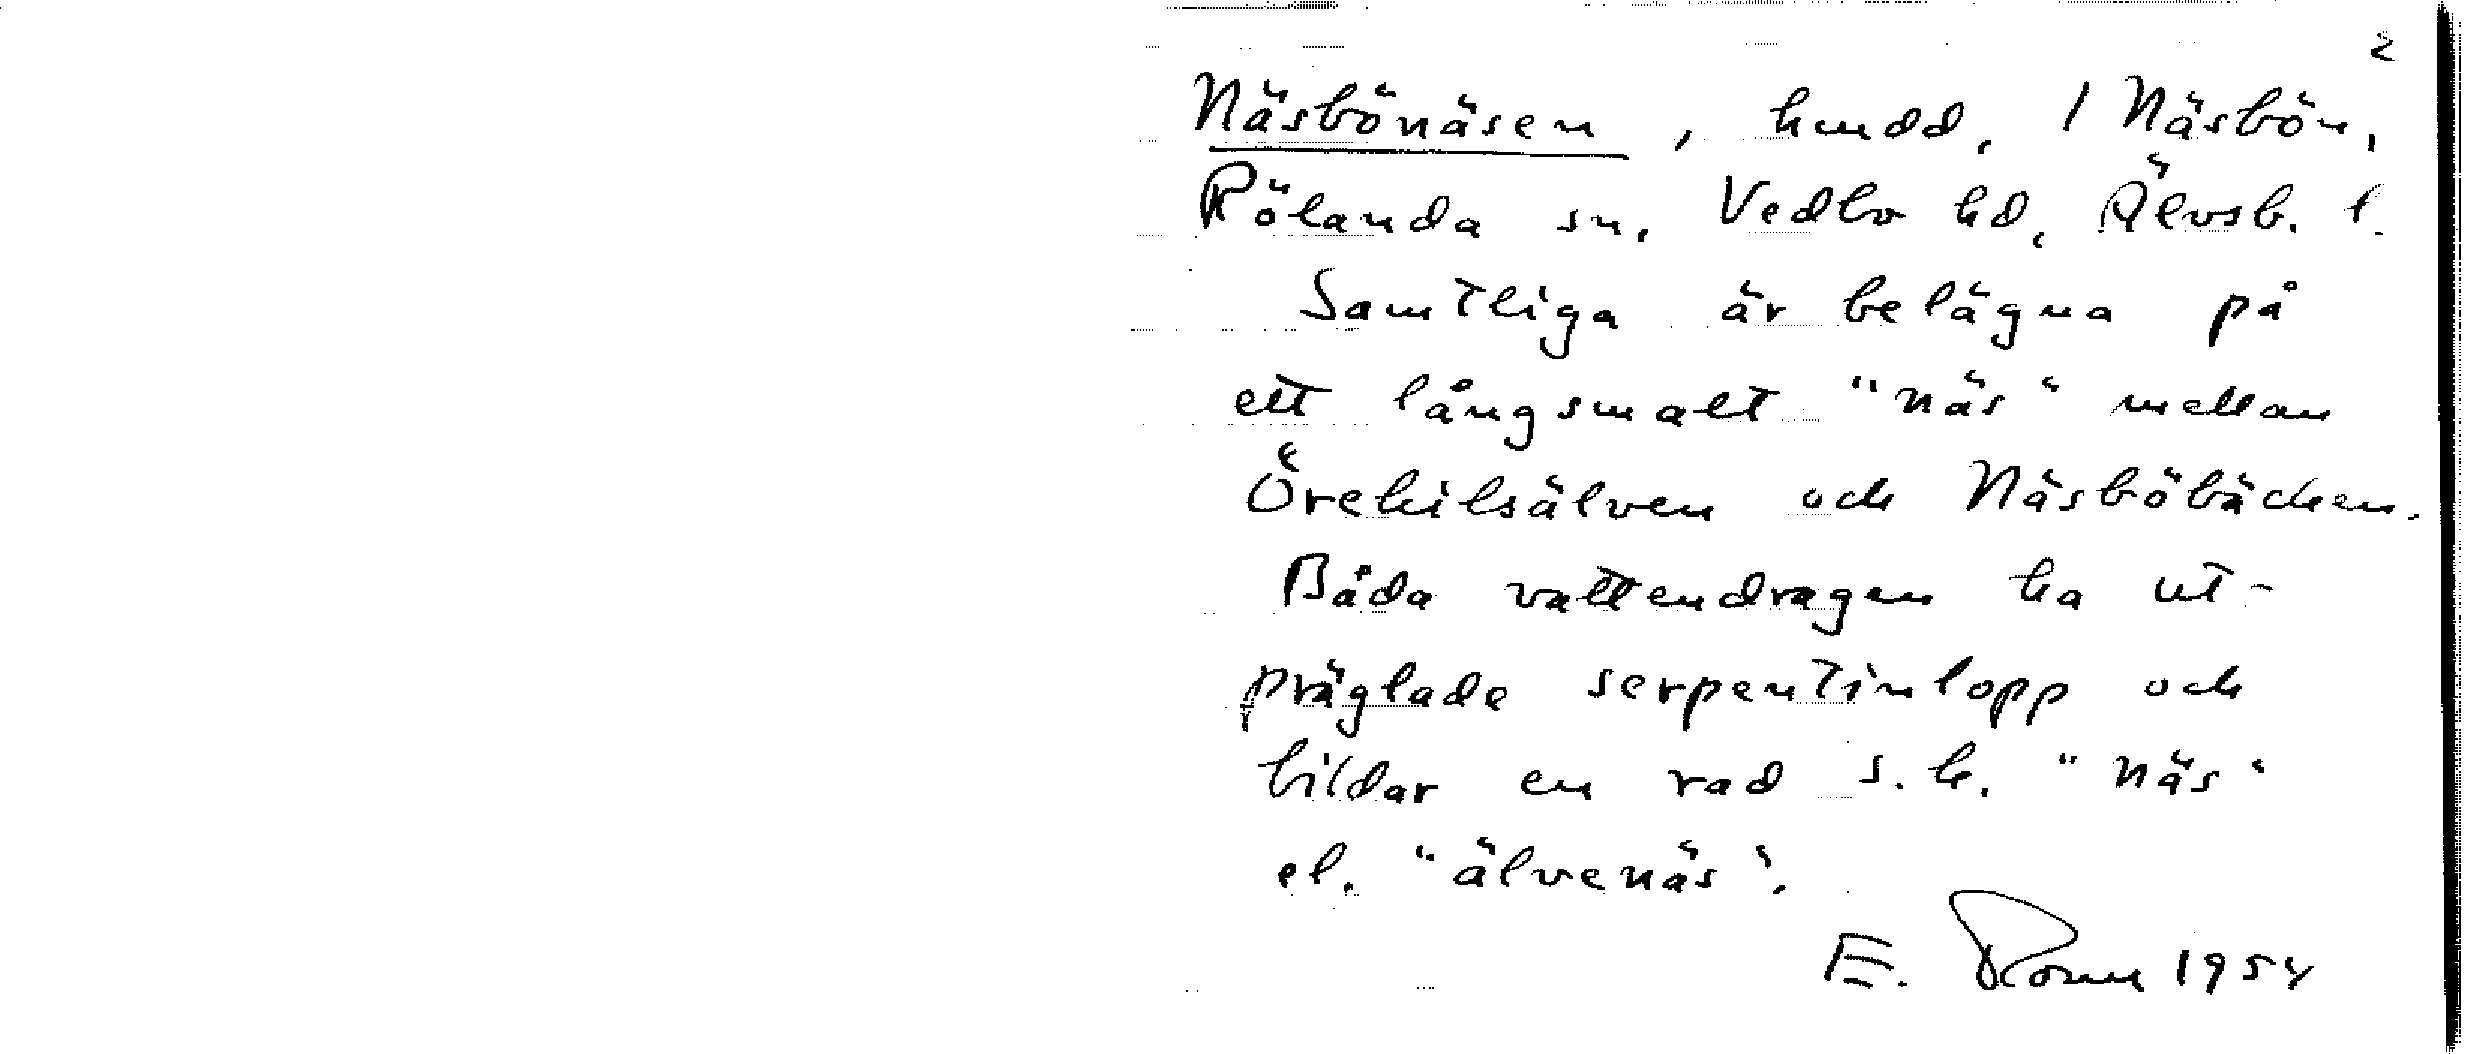 2
Näsbönäsen, hmdd, 1 Näsbön,
Rölanda sn, Vedbo hd, Älvsb. l.
Samtliga är belägna på
ett långsmalt "näs" mellan
Örekilsälven och Näsböbäcken.
Båda vattendragen ha ut-
präglade serpentinlopp och
bildar en rad s.k. "näs"
el. "älvenäs".
E. 1954